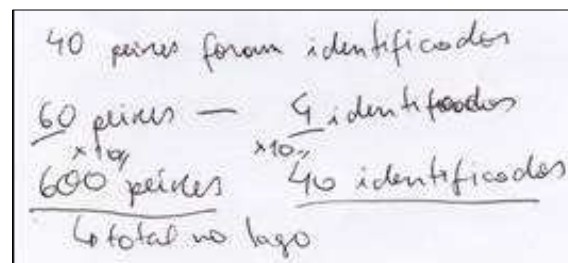 40 peixes foram identificados
60 peixes — 4 identificados
×10 ×10
600 peixes 40 identificados
↳ total no lago